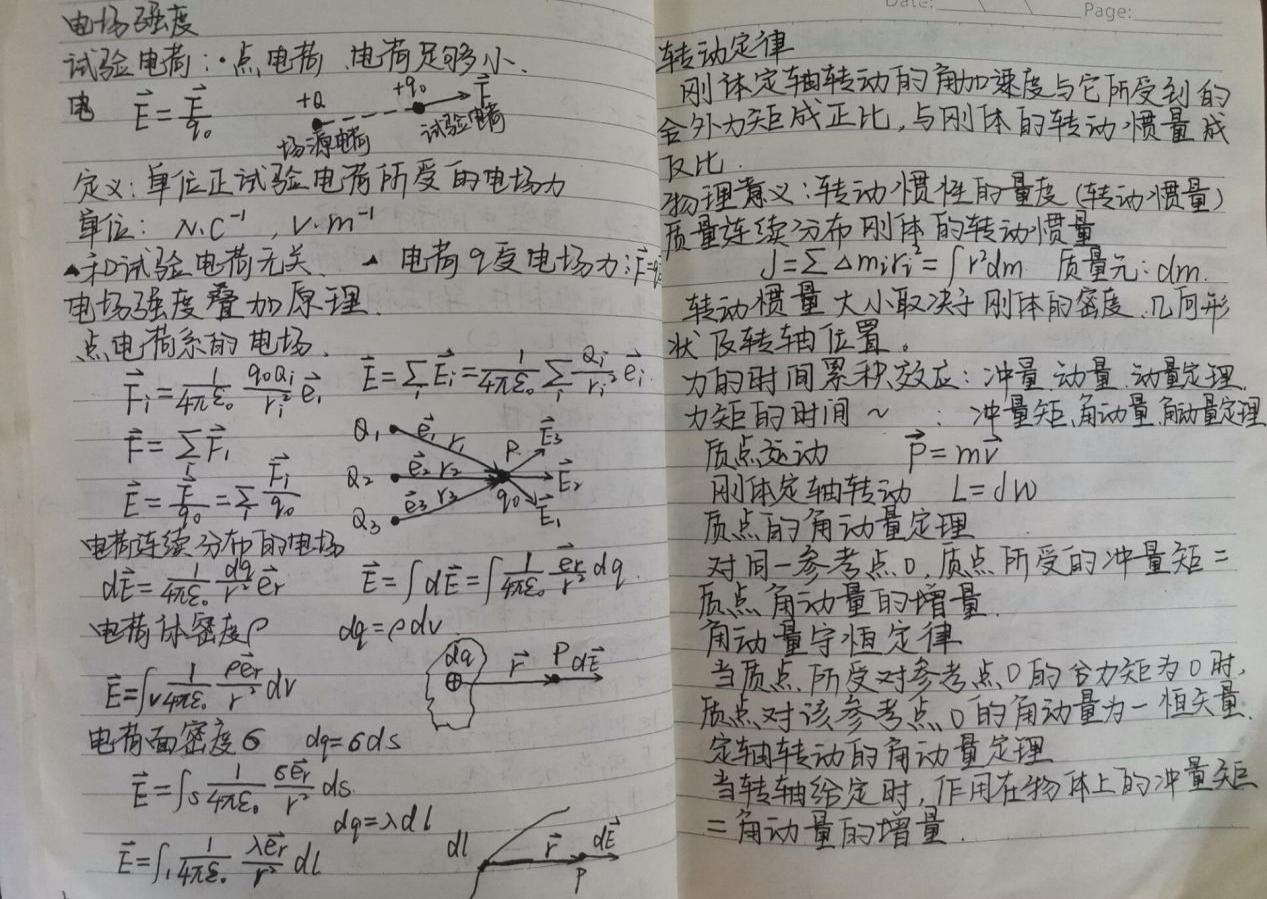 电场强度
试验电荷:·点电荷、电荷足够小.
电 E⃗=F⃗/q₀ +Q +q₀ F⃗
场源电荷 试验电荷
定义:单位正试验电荷所受的电场力
单位: N·C⁻¹ , V·m⁻¹
▲和试验电荷无关、 ▲ 电荷q受电场力:F⃗=q
电场强度叠加原理.
点电荷系的电场.
F⃗ᵢ=1/4πε₀ q₀Qᵢ/rᵢ² e⃗ᵢ E⃗=∑ᵢE⃗ᵢ=1/4πε₀ ∑ᵢ Qᵢ/rᵢ² e⃗ᵢ.
F⃗=∑F⃗ᵢ
E⃗=F⃗/q₀=∑ᵢ F⃗ᵢ/q₀
Q₁ e⃗₁ r₁ P. E⃗₃
Q₂ e⃗₂ r₂ E⃗₂
Q₃ e⃗₃ r₃ q₀ E⃗₁
电荷连续分布的电场
dE⃗=1/4πε₀ dq/r² e⃗r E⃗=∫dE⃗=∫1/4πε₀ e⃗r/r² dq.
电荷体密度ρ dq=ρdv
E⃗=∫v 1/4πε₀ ρe⃗r/r² dv
dq r⃗ P dE⃗
电荷面密度б dq=бds
E⃗=∫s 1/4πε₀ бe⃗r/r² ds.
dq=λdl
E⃗=∫₁ 1/4πε₀ λe⃗r/r² dl
dl r⃗ dE⃗
P
Date: Page:
转动定律
刚体定轴转动的角加速度与它所受到的
合外力矩成正比,与刚体的转动惯量成
反比.
物理意义:转动惯性的量度(转动惯量)
质量连续分布刚体的转动惯量
J=∑△mᵢrᵢ²=∫r²dm 质量元:dm.
转动惯量大小取决于刚体的密度.几何形
状及转轴位置。
力的时间累积效应:冲量.动量.动量定理.
力矩的时间~ . 冲量矩、角动量、角动量定理
质点运动 P⃗=mv⃗
刚体定轴转动 L=Jw
质点的角动量定理
对同一参考点O,质点所受的冲量矩=
质点角动量的增量.
角动量守恒定律
当质点所受对参考点O的合力矩为0时,
质点对该参考点O的角动量为一恒矢量.
定轴转动的角动量定理
当转轴给定时,作用在物体上的冲量矩
=角动量的增量.